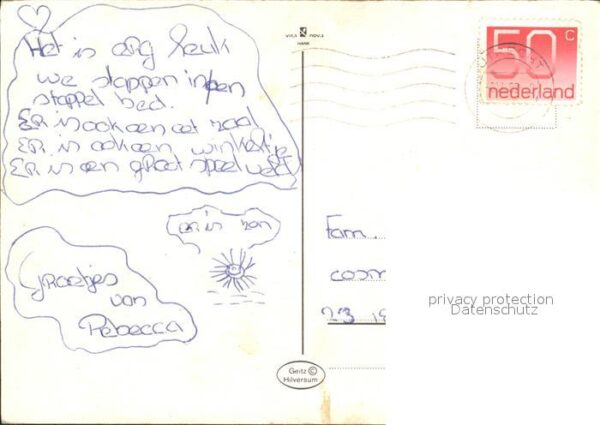 Het is erg leuk
we slappen in een
stappel bed.
Er is ook een eet zaal
Er is ook een winkeltje
Er is een groot speel veld
er is zon
Groetjes
van
Rebecca
VITA NOVA
50 C
nederland
Fam.
23
privacy protection
Datenschutz
Geitz ©
Hilversum